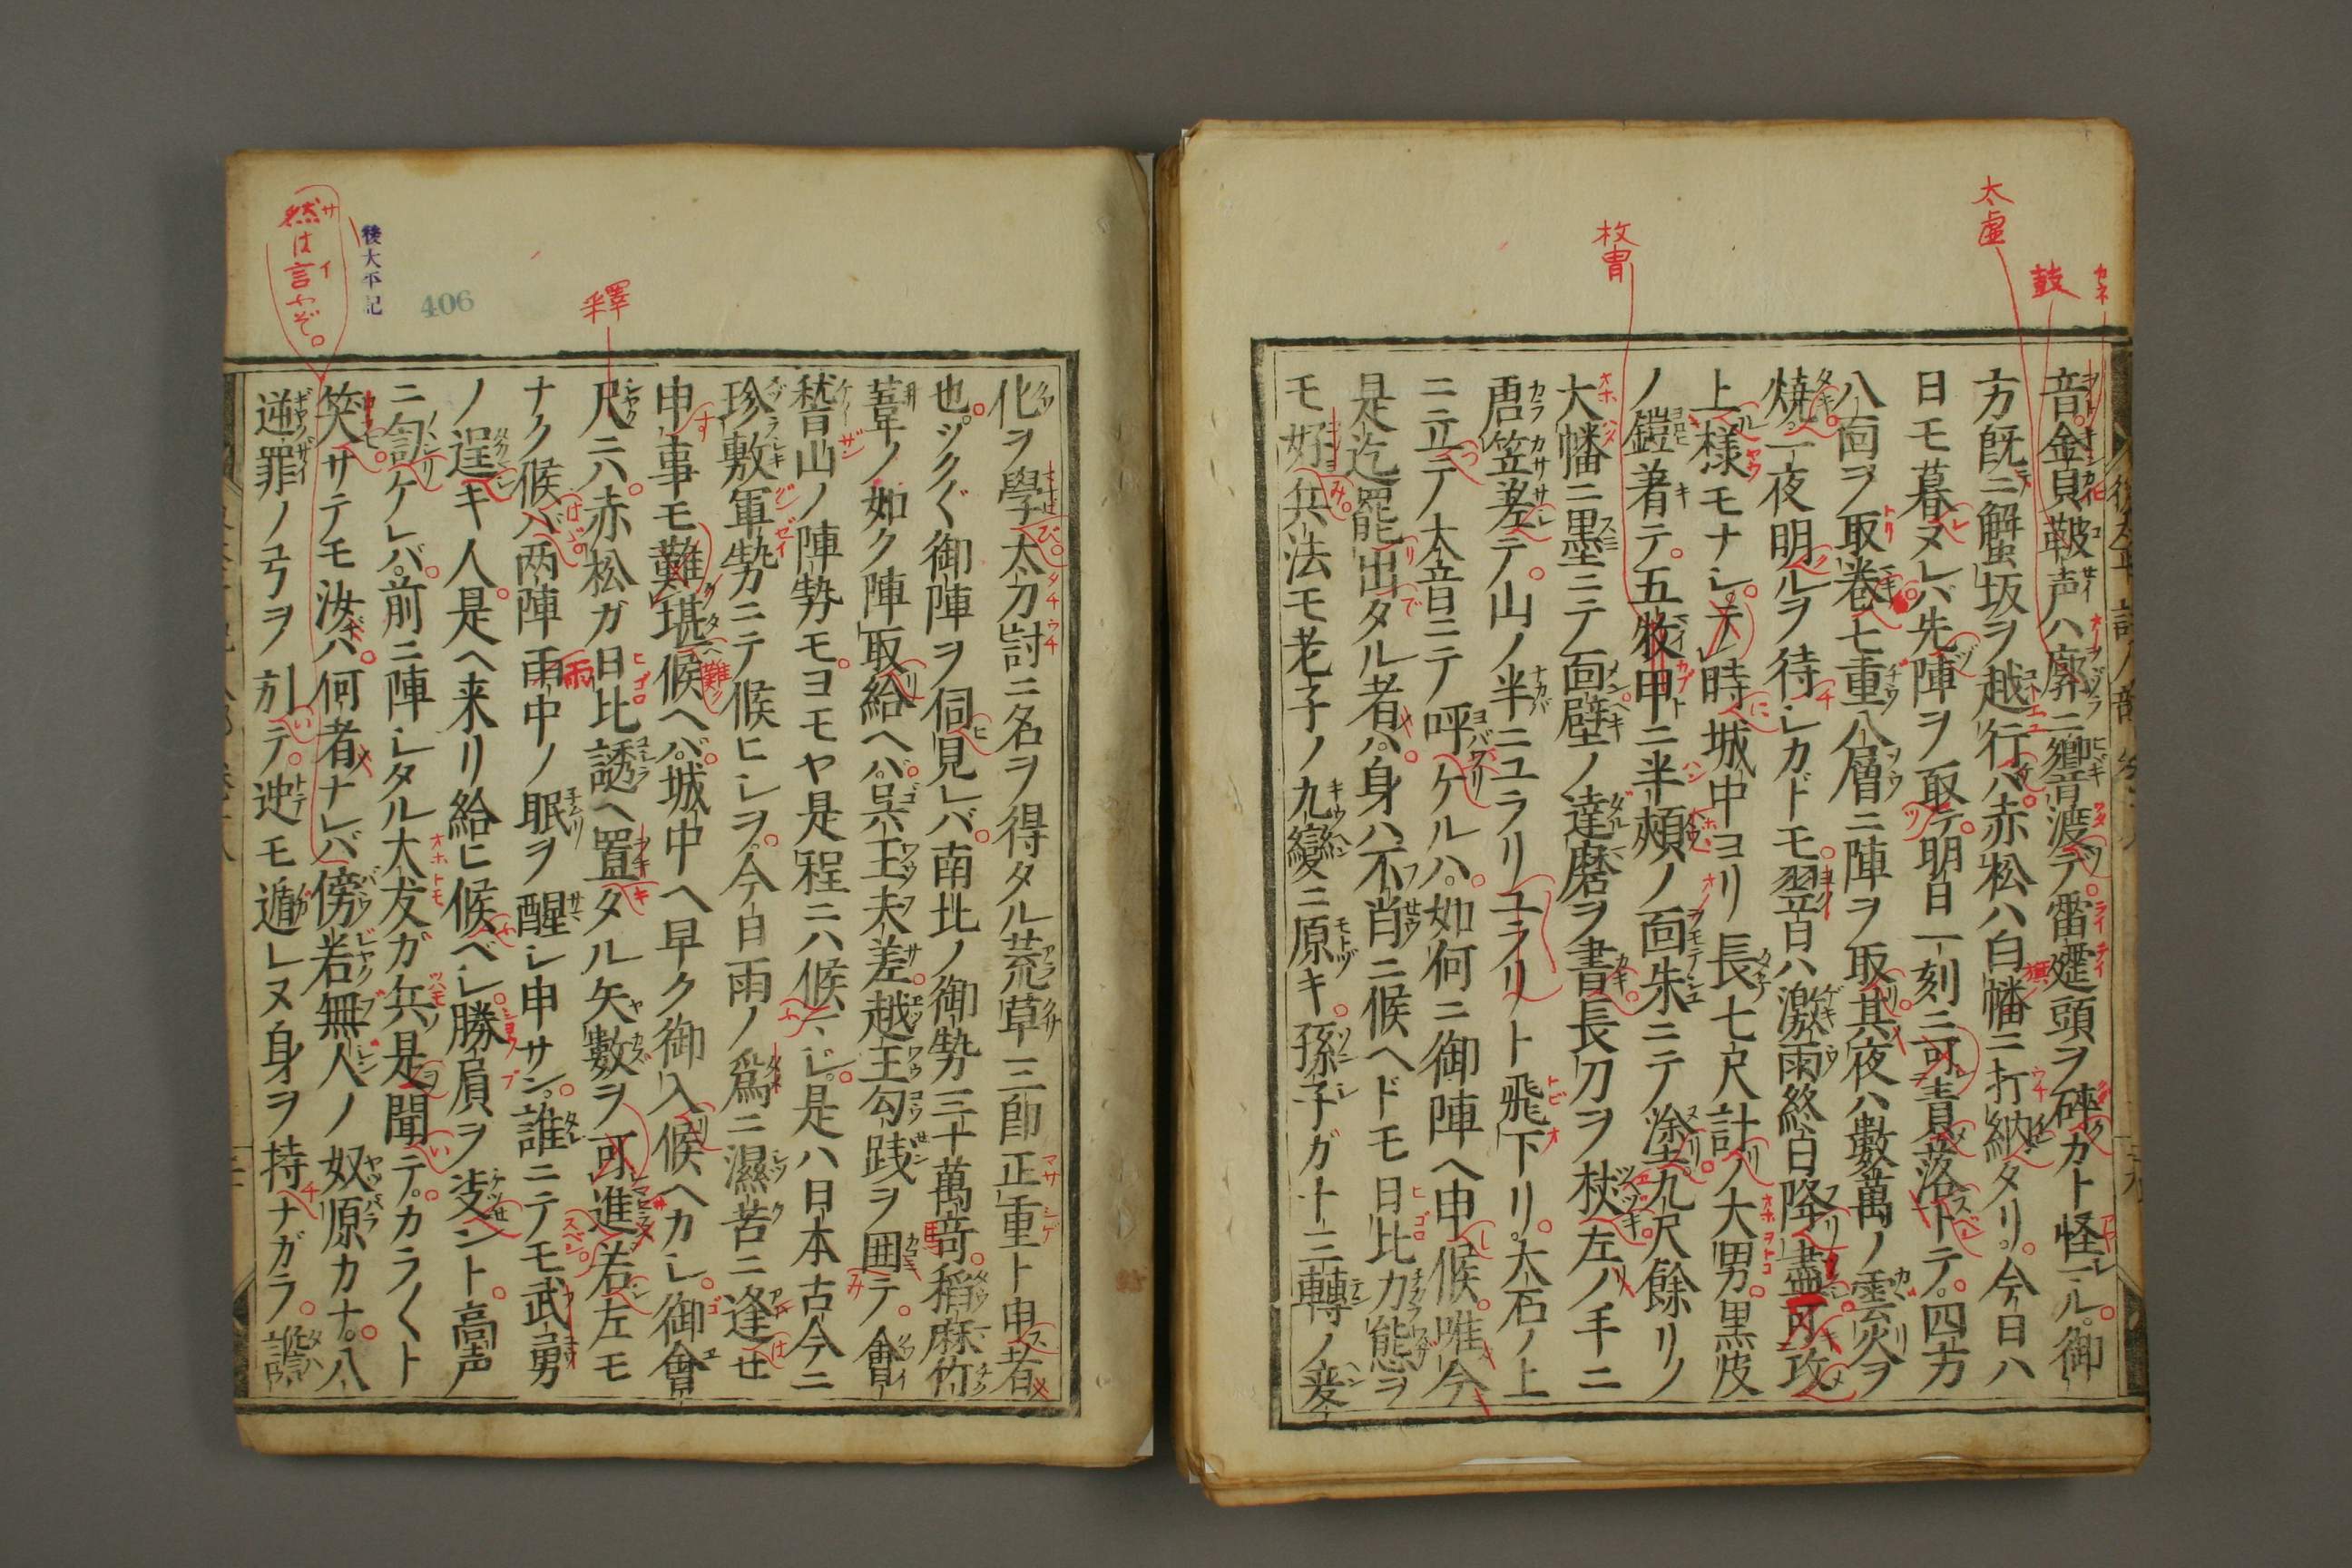 太虚
鼓
カネ
枚冑
音。金貝鞁声ハ廓ニ響渡テ雷霆頭ヲ砕カト怪ル。御
方既ニ蟹坂ヲ越行バ赤松ハ白幡ニ打納タリ。今日ハ
日モ暮ヌレバ先陣ヲ取テ明日一刻ニ可責落トテ。四方
八面ヲ取巻七重八層ニ陣ヲ取其夜ハ數萬ノ雲火ヲ
焼。一夜明ルヲ待シカドモ翌日ハ激雨終日降盡可攻
上様モナシ。テ時城中ヨリ長七尺計ノ大男。黒皮
ノ鎧著テ。五牧甲ニ半頬ノ面朱ニテ塗。九尺餘リノ
大幡ニ墨ニテ面壁ノ達磨ヲ書長刀ヲ杖左ハ手ニ
唐笠差テ。山ノ半ニユラリユラリト飛下リ。大石ノ上
ニ立テノ大音ニテ呼ケルハ。如何ニ御陣ヘ申候。唯今
是迄罷出タル者ハ。身ハ不肖ニ候ヘドモ日比力態ヲ
モ好兵法モ老子ノ九變ニ原キ。孫子ガ十三轉ノ変
然は言やぞ。
後太平記
406
釋
化ヲ學太刀討ニ名ヲ得タル荒草三郎正重ト申者
也。ツクぐ御陣ヲ伺見レバ。南北ノ御勢三十萬奇。稻麻竹
葦ノ如ク陣取給ヘバ。呉王夫差越王勾踐ヲ囲テ。會
嵆山ノ陣勢モヨモヤ是程ニハ候ハジ。是ハ日本古今ニ
珍敷軍勢ニテ候ヒシヲ。今白雨ノ為ニ濕苦ニ逢せ
申事モ難堪候ヘバ。城中ヘ早ク御入候ヘカシ。御會
尺ニハ赤松ガ日比誘ヘ置タル矢數ヲ可進若左モ
ナク候バ两陣雨中ノ眠ヲ醒シ申サン。誰ニテモ武勇
ノ逞キ人是ヘ来リ給ヒ候ベシ勝負ヲ决ント。高声
ニ訇ケレバ。前ニ陣シタル大友ガ兵是聞テ。カラ〱ト
笑サテモ汝ハ何者ナレバ傍若無人ノ奴原カナ。八
逆罪ノ弓ヲ引テ。迚モ遁レヌ身ヲ持ナガラ。